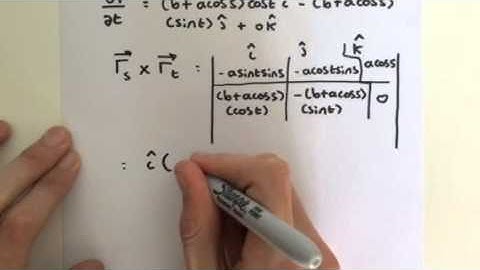 ∂t = (b+acoss)cost î - (b+acoss)
(sint) ĵ + 0k̂
î ĵ k̂
r⃗s x r⃗t = | -asintsins | -acostsins | acoss |
| (b+acoss)(cost) | -(b+acoss)(sint) | 0 |
= î (
Sharpie